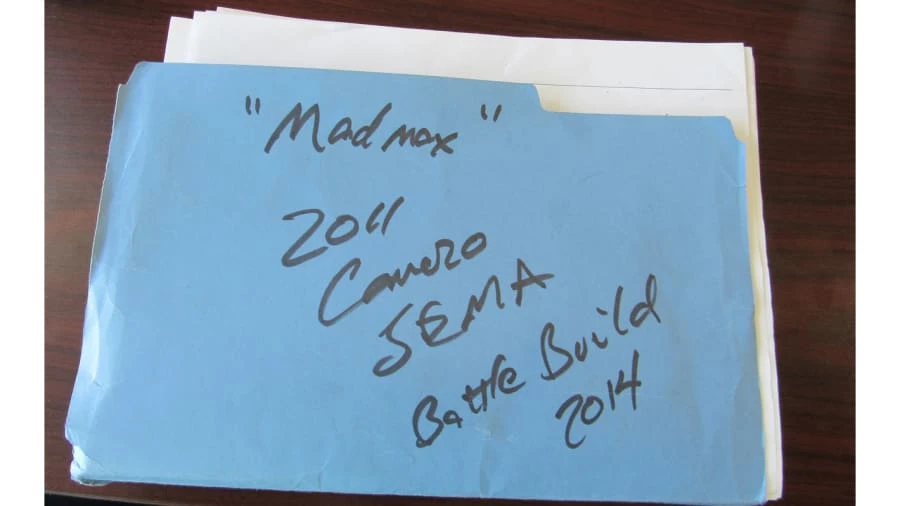 "Madmax"
2011
Camero
SEMA
Battle Build
2014